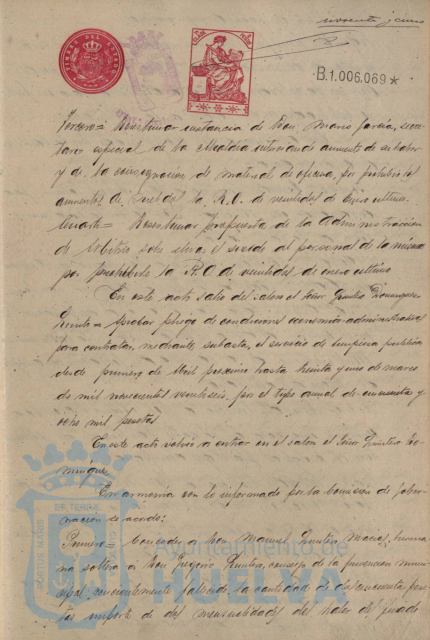 noventa y cinco
TIMBRE DEL ESTADO
B.1.006.069*
Tercero = Desestimar instancia de Don Mario García, secre-
tario especial de la Alcaldía interesando aumento de su haber
y de la consignación de material de oficina, por prohibir los
aumentos de sueldos la R.O. de veintidos de Enero último.
Cuarto = Desestimar propuesta de la Administración
de Arbitrios sobre el sueldo al personal de la misma
por prohibirlo la R.O de veintidos de enero último
En este acto salió del salon el Señor Quintero Dominguez
Quinto = Aprobar pliego de condiciones económico-administrativas
para contratar, mediante subasta, el servicio de limpieza pública
desde primero de Abril proximo hasta treinta y uno de marzo
de mil novecientos veintiseis, por el tipo anual de cincuenta y
ocho mil pesetas
En este acto volvió a entrar en el salon el Señor Quintero Do-
minguez
En armonia con lo informado por la Comisión de Gober-
nación se acordó:
Primero = Conceder a Don Manuel Quintero Macias, herma-
na soltera de Don Gregorio Quintero, conserje de la prevención muni-
cipal, recientemente fallecido, la cantidad de doscientas pese-
tas importe de dos mensualidades del haber de
Ayuntamiento de
HUELVA